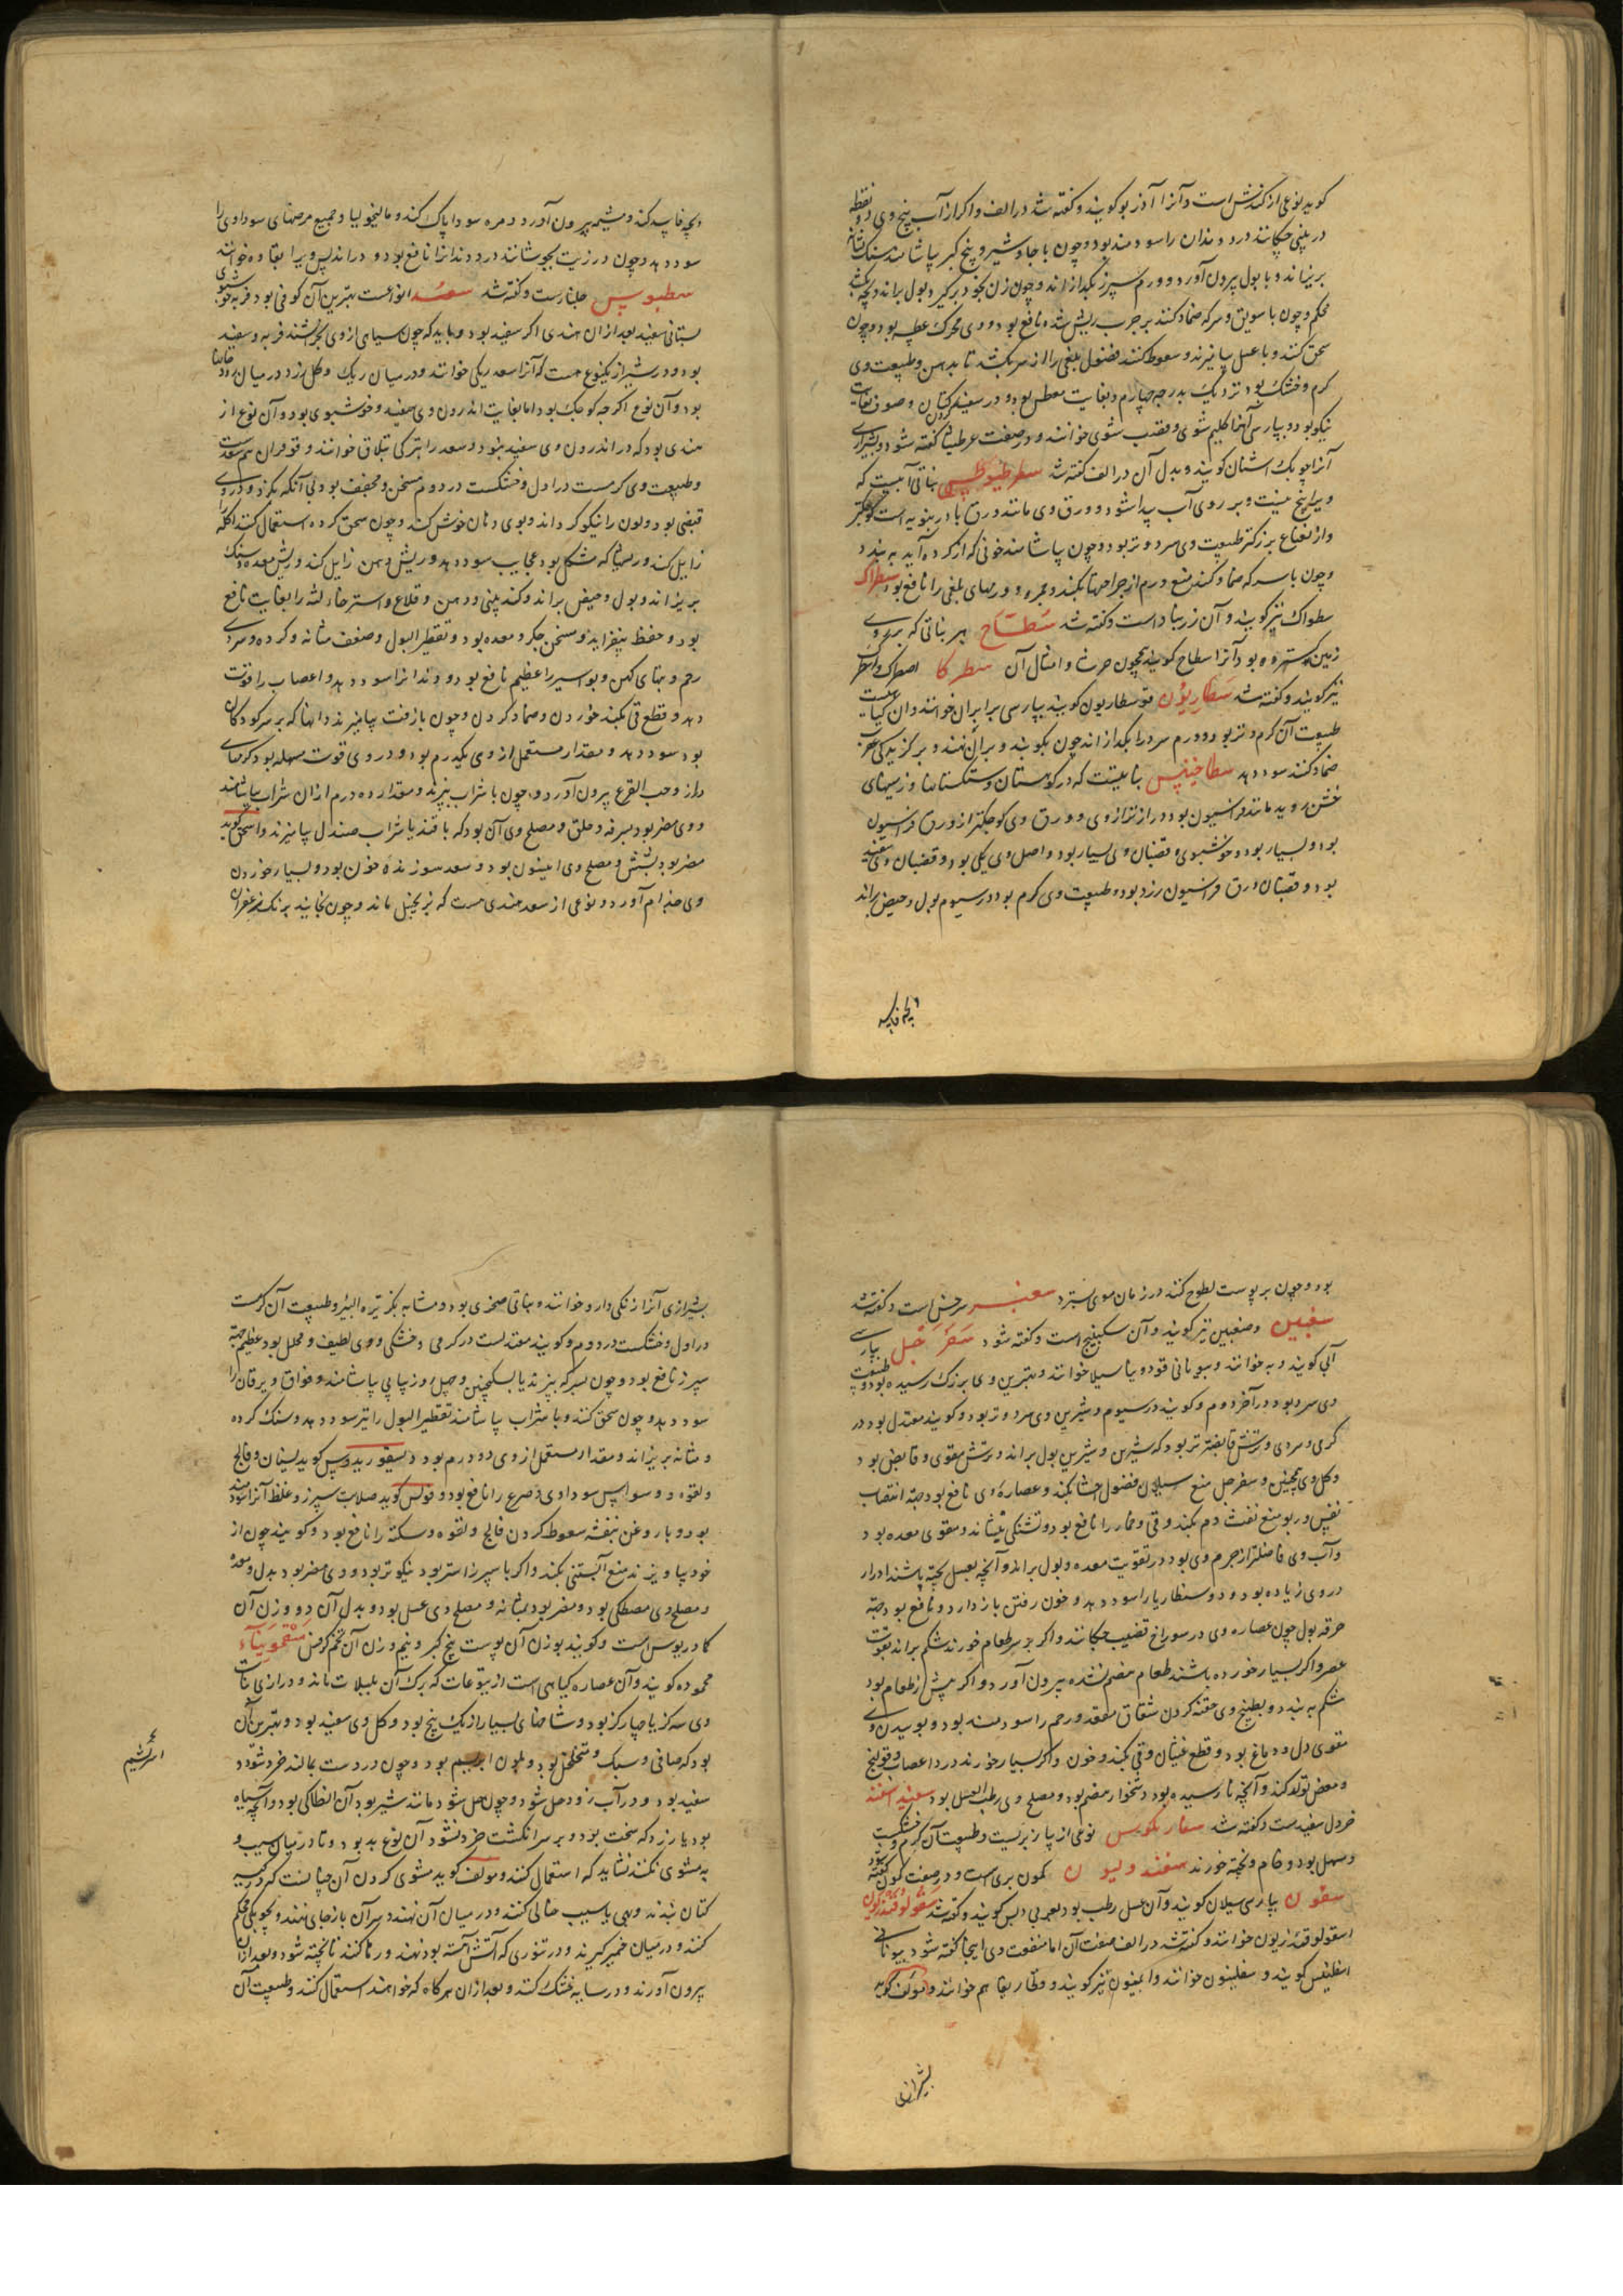 گویند نوعی از کندش است و آنرا آذربو گویند و گفته شد در الف و اگر از آب بیخ وی دو نقطه
در بینی چکانند درد دندان را سودمند بود و چون با جاوشیر و بیخ کبر بیاشامند سنک مثانه
بریزاند و با بول بیرون آورد و ورم سپرز بگدازاند و چون زن بخود برگیرد بول براند و بچه بکشد
محکم و چون با سویق و سرکه ضماد کنند بر جرب ریش شده نافع بود و وی محرک عطسه بود و چون
سحق کنند و با عسل بیامیزند و سعوط کنند فضول بلغمی را از سر بکشد تا بدهن و طبیعت وی
گرم و خشک بود نزدیک بدرجه چهارم و بغایت معطس بود و در سفید کردن کتان و صوف بغایت
نیکو بود و بپارسی آنرا گلیم شوی و قصب شوی خوانند و در صفت عرطنیثا گفته شود و بشیرازی
آنرا چوبک اشنان گویند و بدل آن در الف گفته شد سطرطیوطس نباتی آبیست که
ویرا بیخ نیست و بر روی آب پیدا شود و ورق وی مانند ورق بادرنبویه است کوچکتر
و از نعناع بزرکتر طبیعت وی سرد و تر بود و چون بیاشامند خونی که از گرده آید به بندد
و چون با سرکه ضماد کنند منع ورم از جراحتها بکند و حمره و ورمهای بلغمی را نافع بود سطراک
سطواک نیز گویند و آن زرنباد است و گفته شد سطاح هر نباتی که بر روی
زمین گسترده بود آنرا سطاح گویند همچون حرشا و امثال آن سطرکا اصطرک و اسطرک
نیز گویند و گفته شد سطاریون قوسطاریون گویند بپارسی برابران خوانند و آن گیاهیست
طبیعت آن گرم و تر بود و ورم سرد را بگدازاند چون بکوبند و بر آن نهند و بر گزیدگی عقرب
ضماد کنند سود دهد سطاخینس نباتیست که در کوهستان و سنگستانها و زمینهای
خشن روید مانند فراسیون بود دراز تر از وی و ورق وی کوچکتر از ورق فراسیون
بود و بسیار بود و خوشبوی و قضبان وی بسیار بود و اصل وی یکی بود و قضبان وی سفید
بود و قضبان ورق فراسیون زرد بود و طبیعت وی گرم بود در سیوم بول و حیض براند
بچه بیفکند و مشیمه بیرون آورد و مره سودا پاک کند و مالیخولیا و جمیع مرضهای سوداوی را
سود دهد و چون در زیت بجوشانند درد دندانرا نافع بود و در اندلس ویرا بقاوه خوانند
سطیوس جلنار است و گفته شد سعد انواعست بهترین آن کوفی بود فربه خوشبوی
بستانی سفید بعد از آن هندی اگر سفید بود و باید که چون سیاهی از وی بخراشند فربه و سفید
بود و در شیراز یکنوع هست که آنرا سعد ریکی خوانند و در میان ریک و گل زرد در میان رودخانها
بود و آن نوع اگرچه کوچک بود اما بغایت اندرون وی سفید و خوشبوی بود و آن نوع از
هندی بود که در اندرون وی سفید نبود و سعد را بترکی تبلاق خوانند و قوقران هم سعدست
و طبیعت وی گرمست در اول و خشکست در دوم مسخن و مجفف بود بی آنکه بگزد و در وی
قبضی بود و لون را نیکو گرداند و بوی دهان خوش کند و چون سحق کرده استعمال کنند اکله
زایل کند و ریشها که مشکل بود عجایب سود دهد و ریش دهن زایل کند و ریش معده و سنک
بریزاند و بول و حیض براند و گند بینی و دهن و قلاع و استرخاء لثه را بغایت نافع
بود و حفظ بیفزاید و مسخن جگر و معده بود و تقطیر البول و ضعف مثانه و گرده و سردی
رحم و تبهای کهن و بواسیر را عظیم نافع بود و دندانرا سود دهد و اعصاب را قوت
دهد و قطع قی بکند خوردن و ضماد کردن و چون با زفت بیامیزند دانها که بر سر کودکان
بود سود دهد و مقدار مستعمل از وی یکدرم بود و در وی قوت مسهله بود کرمهای
دراز و حب القرع بیرون آورد و چون با شراب بپزند و مقدار ده درم از آن شراب بیاشامند
و وی مضر بود سرفه و حلق و مصلح وی آن بود که با قند یا شراب صندل بیامیزند و اسحق گوید
مضر بود بشش و مصلح وی انیسون بود و سعد سوزنده خون بود و بسیار خوردن
وی جذام آورد و نوعی از سعد هندی هست که بزنجبیل ماند و چون بخایند برنک زعفران
بچه فا بیه
بود و چون بر پوست لطوخ کنند در زمان موی بسترد سعنبر سرخس است و گفته شد
سغبین و صغبین نیز گویند و آن سکبینج است و گفته شود سفرجل بپارسی
آبی گویند و به خوانند و بیونانی قودونیا میلا خوانند و بهترین وی بزرک رسیده بود و طبیعت
وی سرد بود در آخر دوم و گویند در سیوم و شیرین وی سرد و تر بود و گویند معتدل بود در
گرمی و سردی و ترش قابضتر بود که شیرین و شیرین بول براند و ترش مقوی و قابض بود
و گل وی همچنین و سفرجل منع سیلان فضول احشا بکند و عصاره وی نافع بود جهة انتصاب
نفس و ربو منع نفث دم بکند و قی و خمار را نافع بود و تشنگی بنشاند و مقوی معده بود
و آب وی فاضلتر از جرم وی بود در تقویت معده و بول براند و آنچه بعسل پخته باشند ادرار
در وی زیاده بود و دوسنطاریا را سود دهد و خون رفتن باز دارد و نافع بود جهة
حرقه بول چون عصاره وی در سوراخ قضیب چکانند و اگر بر سر طعام خورند شکم براند بقوت
عصر و اگر بسیار خورده باشند طعام هضم نشده بیرون آورد و اگر پیش از طعام بود
شکم به بندد و بطبیخ وی حقنه کردن شقاق مقعد و رحم را سودمند بود و بوییدن وی
مقوی دل و دماغ بود و قطع غثیان و قی بکند و خون و اگر بسیار خورند درد اعصاب و قولنج
و مغص تولد کند و آنچه نارسیده بود دشخوار هضم بود و مصلح وی رطب العسل بود سفید اسفند
خردل سفیدست و گفته شد سفاریکوس نوعی از پیاز بریست و طبیعت آن گرم و خشکست
و مسهل بود و خام و پخته خورند سفندولیون کمون بری است و در صفت کمون گفته شود
سفون بپارسی سیلان گویند و آن عسل رطب بود بعربی دبس گویند و گفته شد سقولوقندریون
اسقولوقندریون خوانند و گفته شد در الف صفت آن اما منفعت وی اینجا گفته شود بیونانی
اسقلینس گویند و سقلینون خوانند و اطینون نیز گویند و وقتار یقا هم خوانند و مولف گوید
بشیرازی
بشیرازی آنرا زنکی دارو خوانند و نباتی صخری بود و مشابه بکزبرة البیر و طبیعت آن گرمست
در اول و خشکست در دوم و گویند معتدلست در گرمی و خشکی و وی لطیف و محلل بود عظیم جهة
سپرز نافع بود و چون بسرکه بپزند یا بسکنجبین و چهل روز پیاپی بیاشامند و فواق و یرقان را
سود دهد و چون سحق کنند و با شراب بیاشامند تقطیر البول را نیز سود دهد و سنک گرده
و مثانه بریزاند و مقدار مستعمل از وی دو درم بود دیسقوریدوس گوید لیثیان و فالج
و لقوه و وسواس سوداوی و صرع را نافع بود و فولس گوید صلابت سپرز و غلظ آنرا سودمند
بود و با روغن بنفشه سعوط کردن فالج و لقوه و سکته را نافع بود و گویند چون از
خود بیاویزند منع آبستنی بکند و اگر با سپرز استر بود نیکوتر بود و وی مضر بود بدل و معده
و مصلح وی مصطکی بود و مضر بود بمثانه و مصلح وی عسل بود و بدل آن دو وزن آن
کمادریوس است و گویند بوزن آن پوست بیخ کبر و نیم وزن آن تخم کرفس سقمونیاء
محموده گویند و آن عصاره گیاهی است از یتوعات که برک آن بلبلاب ماند و درازی نبات
وی سه گز یا چهار گز بود و شاخهای بسیار از یک بیخ بود و گل وی سفید بود و بهترین آن
بود که صافی و سبک و متخلخل بود و بلون ابریشم بود و چون در دست بمالند خرد شود و
سفید بود و در آب زود حل شود و چون حل شود مانند شیر بود آن انطاکی بود و آنچه سیاه
بود یا زرد که سخت بود و بر سر انگشت خرد نشود آن نوع بد بود و تا در میان سیب و
به مشوی نکنند نشاید که استعمال کنند و مولف گوید مشوی کردن آن چنانست که در کیسه
کتان بندند و بهی یا سیب خالی کنند و در میان آن نهند و سر آن باز جای نهند و بچوبکی محکم
کنند و در میان خمیر گیرند و در تنوری که آتش آهسته بود نهند و رها کنند تا پخته شود و بعد از آن
بیرون آورند و در سایه خشک کنند و بعد از آن هر گاه که خواهند استعمال کنند و طبیعت آن
ابریشم